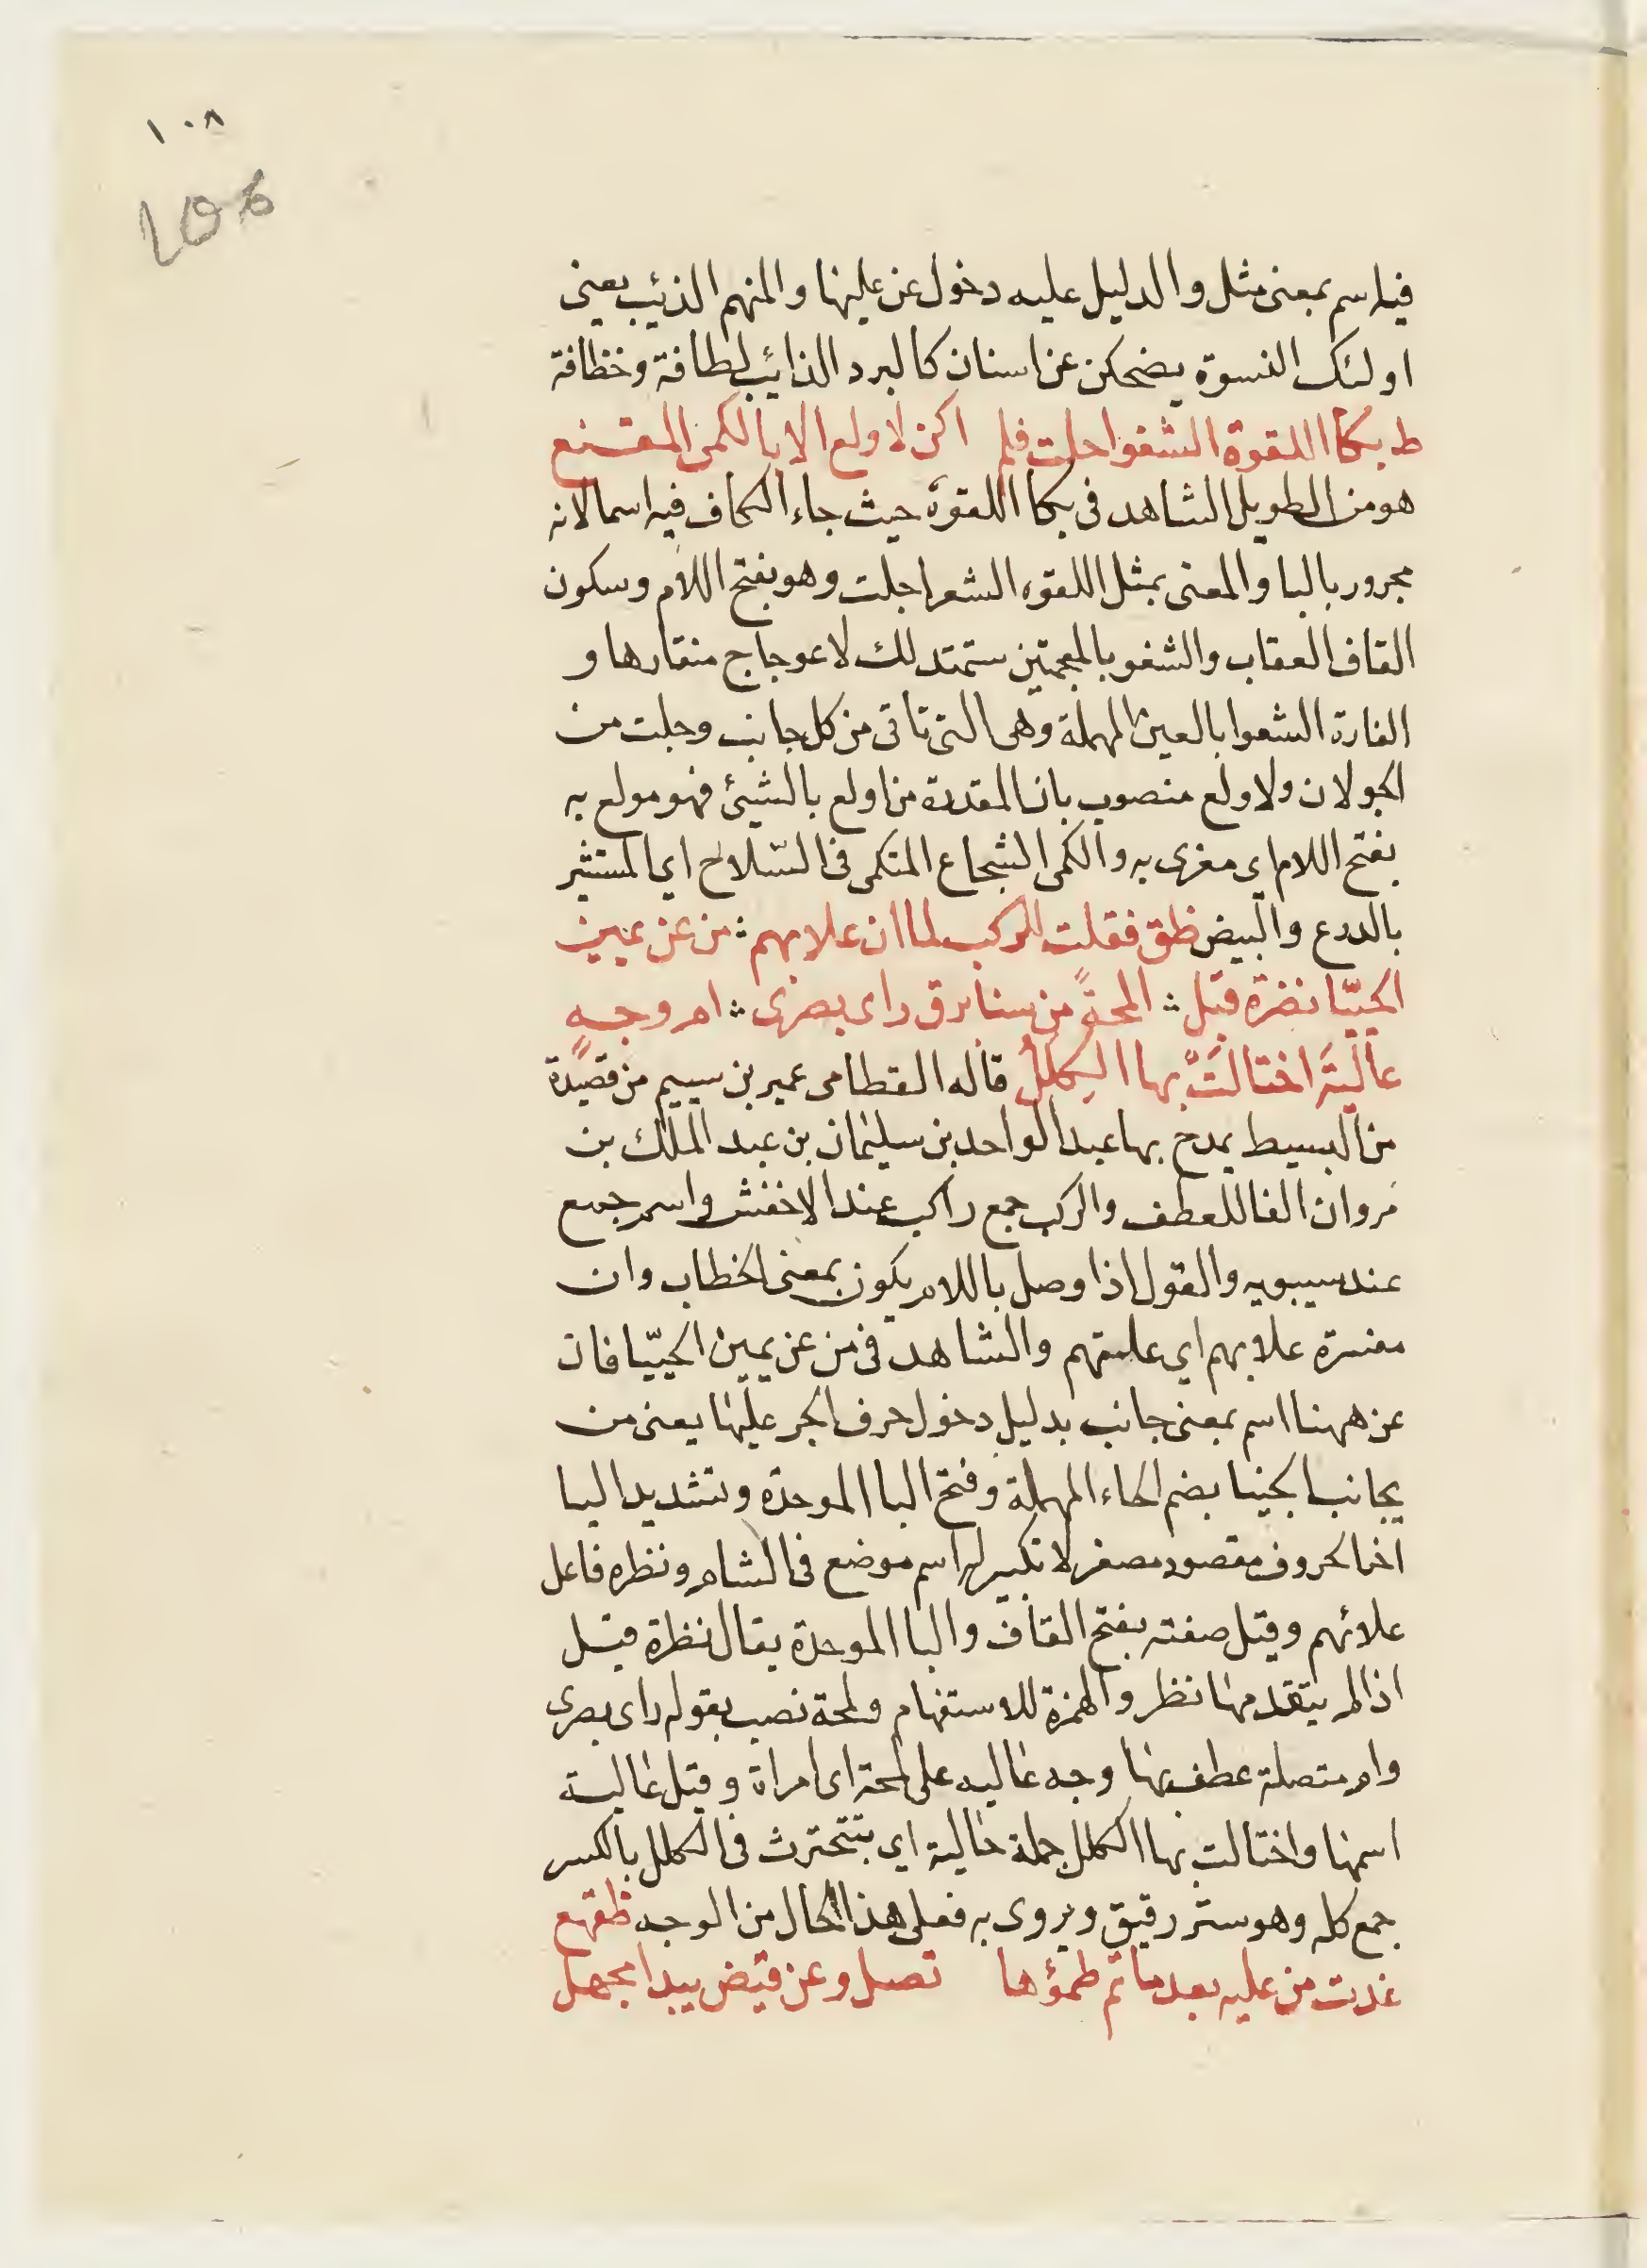 ١٠٨
108
فيه اسم بمعنى مثل والدليل عليه دخول عن عليها والمنهم الذئيب يعنى
اولئك النسوة يضحكن عن اسنان كالبرد الذائب لطافة وخظافة
ط بكا اللقوة الشغوا جلت فلم اكن لاولع الا بالكمى المقنع
هو من الطويل الشاهد فى بكا اللقوة حيث جاء الكاف فيه اسما لانه
مجرور بالبا والمعنى بمثل اللقوه الشعرا جلت وهو بفتح اللام وسكون
القاف العقاب والشغو بالمعجمتين ستمتد لك لاعوجاج منقارها و
الغارة الشعوا بالعين المهملة وهى التى تاتى من كل جانب وجلت من
الجولان ولاولع منصوب بان المقدرة من اولع بالشيئ فهو مولع به
بفتح اللام اى مغرى به والكمى الشجاع المتكمى فى السّلاح اى المستثير
بالدرع والبيض ظق فقلت للركب لما ان علا بهم ؞ من عن يمين
الحبيّا نضرة قبل ؞ المحةً من سنا برق راى بصرى ؞ ام وجه
عاليةَ اختالَتْ بها الكِللُ قاله القطامى عمير بن سييم من قصيدة
من البسيط يمدح بها عبد الواحد بن سليمان بن عبد الملك بن
مروان الفا للعطف والركب جمع راكب عند الاخفش واسم جمع
عند سيبويه والقول اذا وصل باللام يكون بمعنى الخطاب وان
مفسرة علا بهم اى عليتهم والشاهد فى من عن يمين الحبيّا فان
عن ههنا اسم بمعنى جانب بدليل دخول حرف الجر عليها يعنى من
بجانب الحبيا بضم الحاء المهملة وفتح البا الموحدة وتشديد اليا
اخر الحروف مقصور مصغر لا تكبير له اسم موضع فى الشام ونظره فاعل
علائهم وقبل صفته بفتح القاف والبا الموحدة يقال نظرة قبل
اذا لم يتقدمها نظر والهمزة للاستفهام ولمحة نصب بقوله راى بصرى
وام متصلة عطف بها وجه عاليه على لمحة اى امراة وقيل عالية
اسمها واختالت بها الكلل جملة حالية اى بتتخترت فى الكلل بالكسر
جمع كله وهو ستر رقيق ويروى به فعلى هذا الحال من الوجه ظقهع
غدت من عليه بعد ما تم ظمؤها تصل وعن قيض ببيدا مجهل